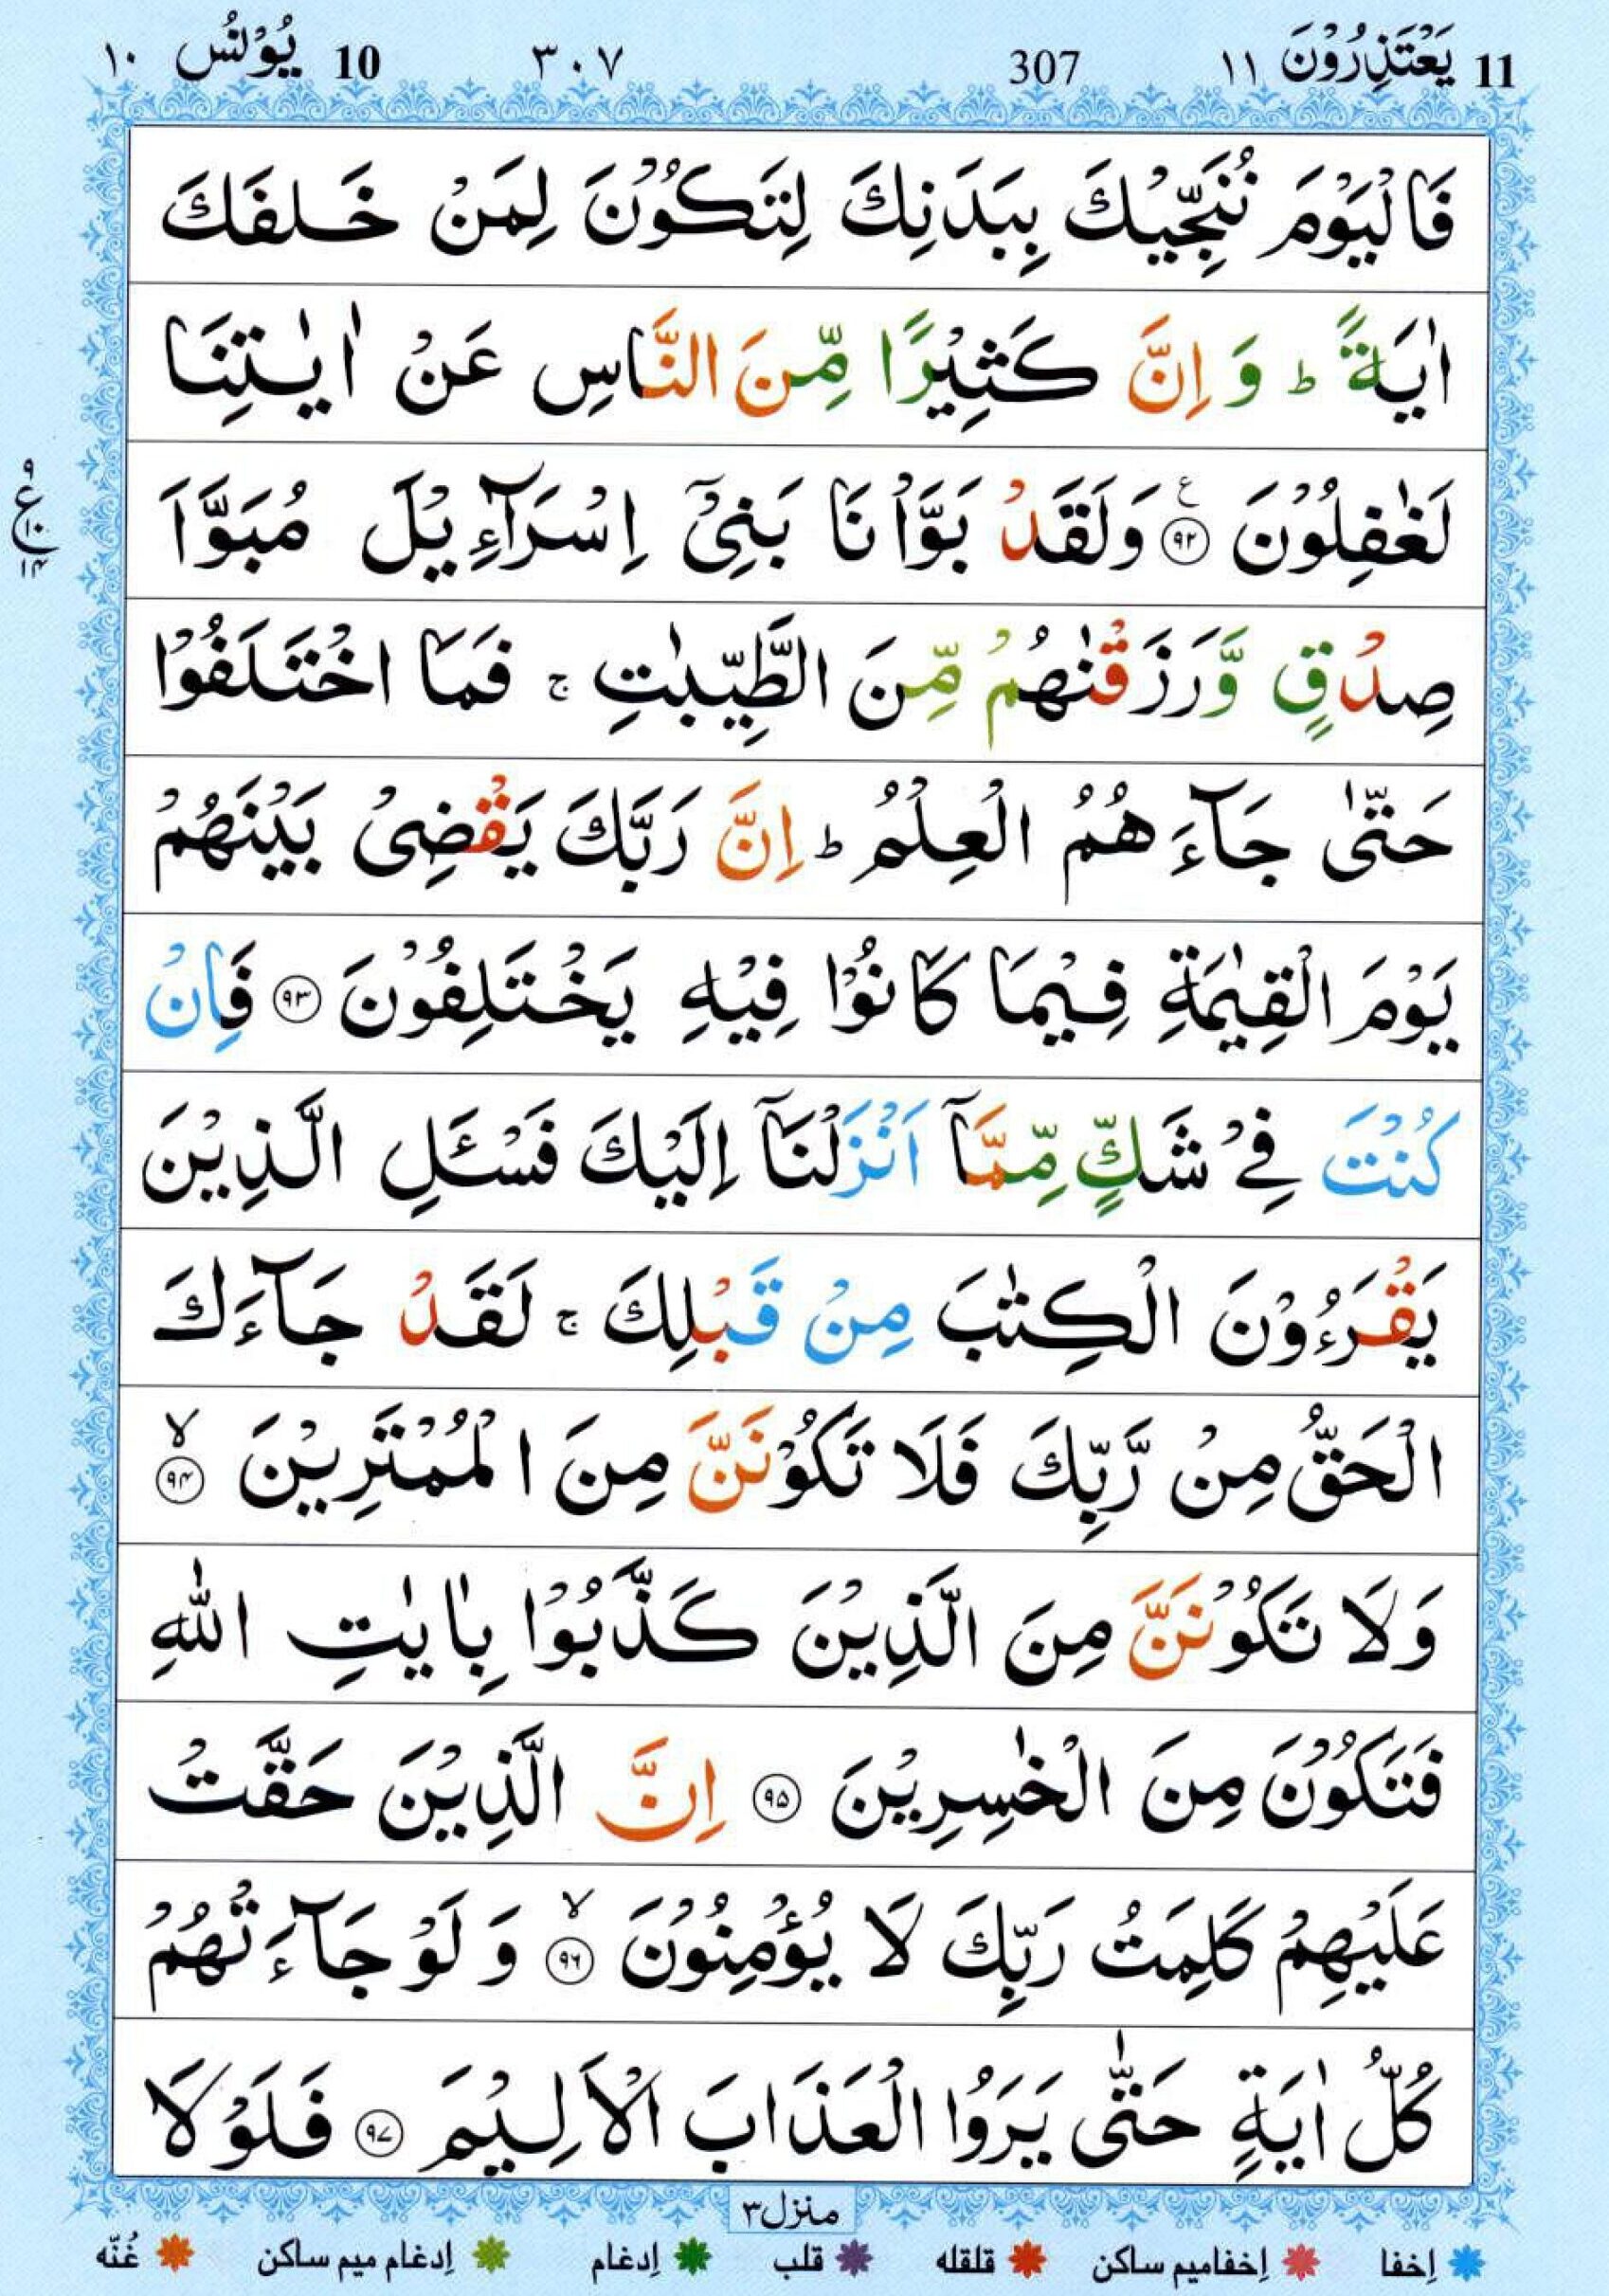 11 يَعْتَذِرُوْنَ ١١ 307 ٣٠٧ 10 يُوْنُس ١٠
فَالْيَوْمَ نُنَجِّيْكَ بِبَدَنِكَ لِتَكُوْنَ لِمَنْ خَلْفَكَ
اٰيَةً ؕ وَ اِنَّ كَثِيْرًا مِّنَ النَّاسِ عَنْ اٰيٰتِنَا
لَغٰفِلُوْنَ ۧ ﴿۹۲﴾ وَلَقَدْ بَوَّاْنَا بَنِيْۤ اِسْرَآءِيْلَ مُبَوَّاَ
ع ۹ ۱۰ ۱۴
صِدْقٍ وَّرَزَقْنٰهُمْ مِّنَ الطَّيِّبٰتِ ۚ فَمَا اخْتَلَفُوْا
حَتّٰى جَآءَهُمُ الْعِلْمُ ؕ اِنَّ رَبَّكَ يَقْضِيْ بَيْنَهُمْ
يَوْمَ الْقِيٰمَةِ فِيْمَا كَانُوْا فِيْهِ يَخْتَلِفُوْنَ ﴿۹۳﴾ فَاِنْ
كُنْتَ فِيْ شَكٍّ مِّمَّاۤ اَنْزَلْنَاۤ اِلَيْكَ فَسْـَٔلِ الَّذِيْنَ
يَقْرَءُوْنَ الْكِتٰبَ مِنْ قَبْلِكَ ۚ لَقَدْ جَآءَكَ
الْحَقُّ مِنْ رَّبِّكَ فَلَا تَكُوْنَنَّ مِنَ الْمُمْتَرِيْنَ ۙ ﴿۹۴﴾
وَلَا تَكُوْنَنَّ مِنَ الَّذِيْنَ كَذَّبُوْا بِاٰيٰتِ اللّٰهِ
فَتَكُوْنَ مِنَ الْخٰسِرِيْنَ ﴿۹۵﴾ اِنَّ الَّذِيْنَ حَقَّتْ
عَلَيْهِمْ كَلِمَتُ رَبِّكَ لَا يُؤْمِنُوْنَ ۙ ﴿۹۶﴾ وَ لَوْ جَآءَتْهُمْ
كُلُّ اٰيَةٍ حَتّٰى يَرَوُا الْعَذَابَ الْاَلِيْمَ ﴿۹۷﴾ فَلَوْلَا
منزل ۳
اِخفا اِخفامیم ساکن قلقله قلب اِدغام اِدغام میم ساکن غُنّه